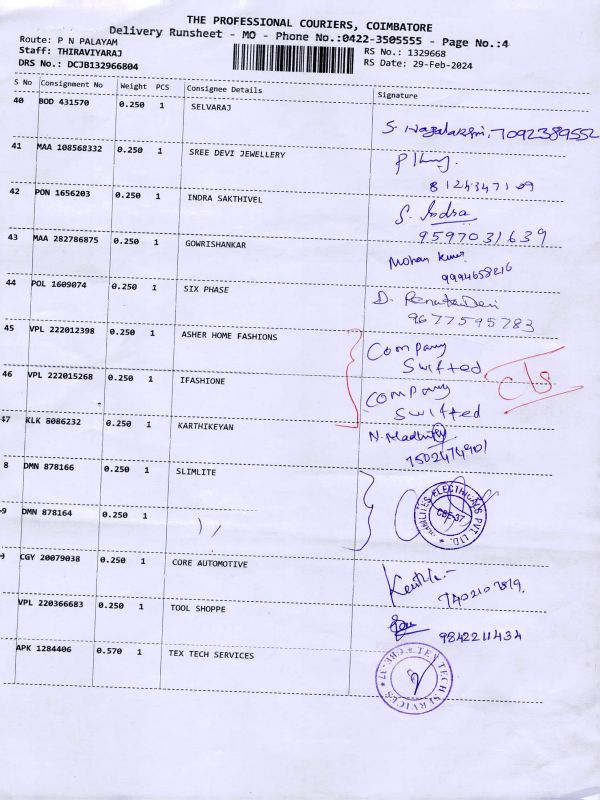 THE PROFESSIONAL COURIERS, COIMBATORE
Delivery Runsheet - MO - Phone No.:0422-3505555 - Page No.:4
Route: P N PALAYAM
RS No.: 1329668
Staff: THIRAVIYARAJ
RS Date: 29-Feb-2024
DRS No.: DCJB132966804
S No Consignment No Weight PCS Consignee Details Signature
40 BOD 431570 0.250 1 SELVARAJ
S. Nagalakshmi. 7092389552
41 MAA 108568332 0.250 1 SREE DEVI JEWELLERY
42 PON 1656203 0.250 1 INDRA SAKTHIVEL
S. Indra
9597031639
43 MAA 282786875 0.250 1 GOWRISHANKAR
Mohan Kumar
9994658216
44 POL 1609074 0.250 1 SIX PHASE
D. Renuka Devi
9677595783
45 VPL 222012398 0.250 1 ASHER HOME FASHIONS
Company
Swifted
46 VPL 222015268 0.250 1 IFASHIONE
Company
Swifted
c/s
47 KLK 8086232 0.250 1 KARTHIKEYAN
N. Madhu
7502474901
8 DMN 878166 0.250 1 SLIMLITE
ELECTRICALS PVT. LTD.
CBE-37
9 DMN 878164 0.250 1
CGY 20079038 0.250 1 CORE AUTOMOTIVE
VPL 220366683 0.250 1 TOOL SHOPPE
9842211434
APK 1284406 0.570 1 TEX TECH SERVICES
TEX TECH SERVICES * CBE-37 *